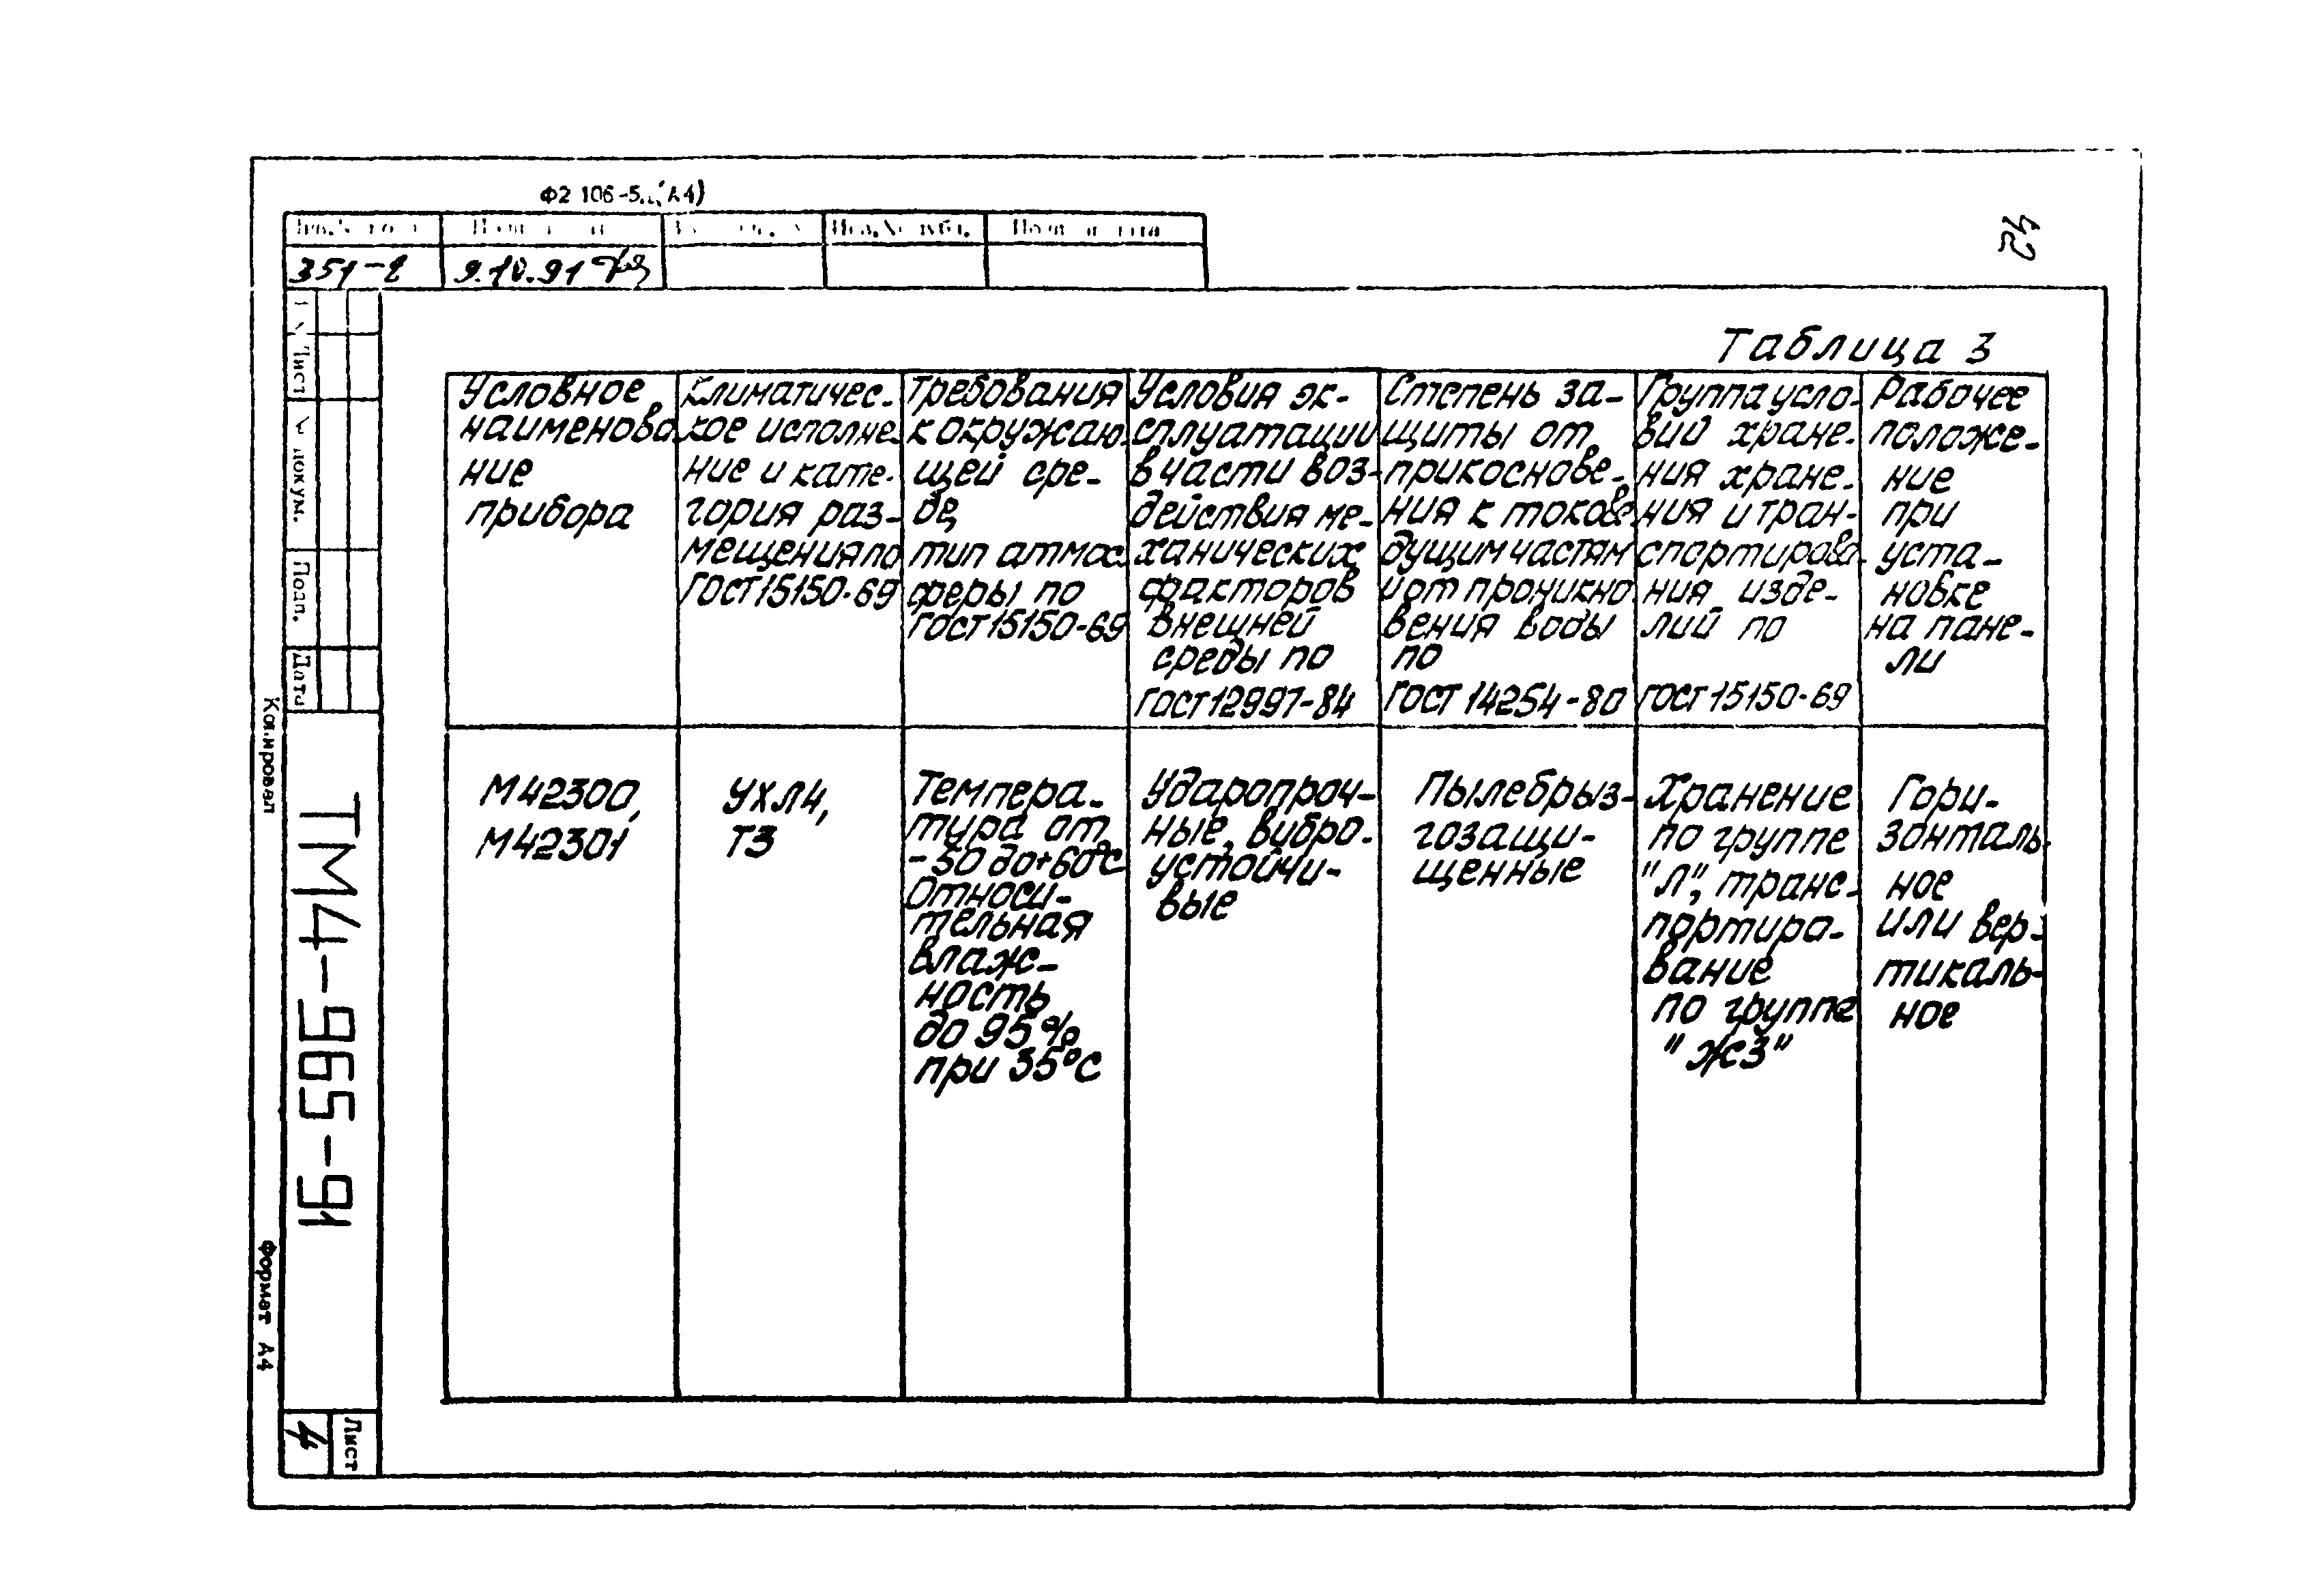 Ф2 106-5
А4)
351-2
9.10.91
42
Таблица 3
Условное
наименова
ние
прибора
Климатичес-
кое исполне-
ние и кате-
гория раз-
мещения по
ГОСТ 15150-69
Требования
к окружаю-
щей сре-
де,
тип атмос
феры по
ГОСТ 15150-69
Условия эк-
сплуатации
в части воз-
действия ме-
ханических
факторов
внешней
среды по
ГОСТ 12997-84
Степень за-
щиты от
прикоснове-
ния к токов
дущим частям
и от проникно
вения воды
по
ГОСТ 14254-80
Группа усло-
вий хране-
ния хране-
ния и тран-
спортирова-
ния изде-
лий по
ГОСТ 15150-69
Рабочее
положе-
ние
при
уста-
новке
на пане-
ли
М42300,
М42301
УХЛ4,
Т3
Темпера-
тура от
-50 до +60°С
Относи-
тельная
влаж-
ность
до 95%
при 35°С
Ударопроч-
ные, вибро-
устойчи-
вые
Пылебрыз-
гозащи-
щенные
Хранение
по группе
"Л", транс-
портиро-
вание
по группе
"Ж3"
Гори-
зонталь-
ное
или вер-
тикаль-
ное
Лист
докум.
Подп.
Дата
ТМ4-965-91
Лист
4
Копировал
Формат А4